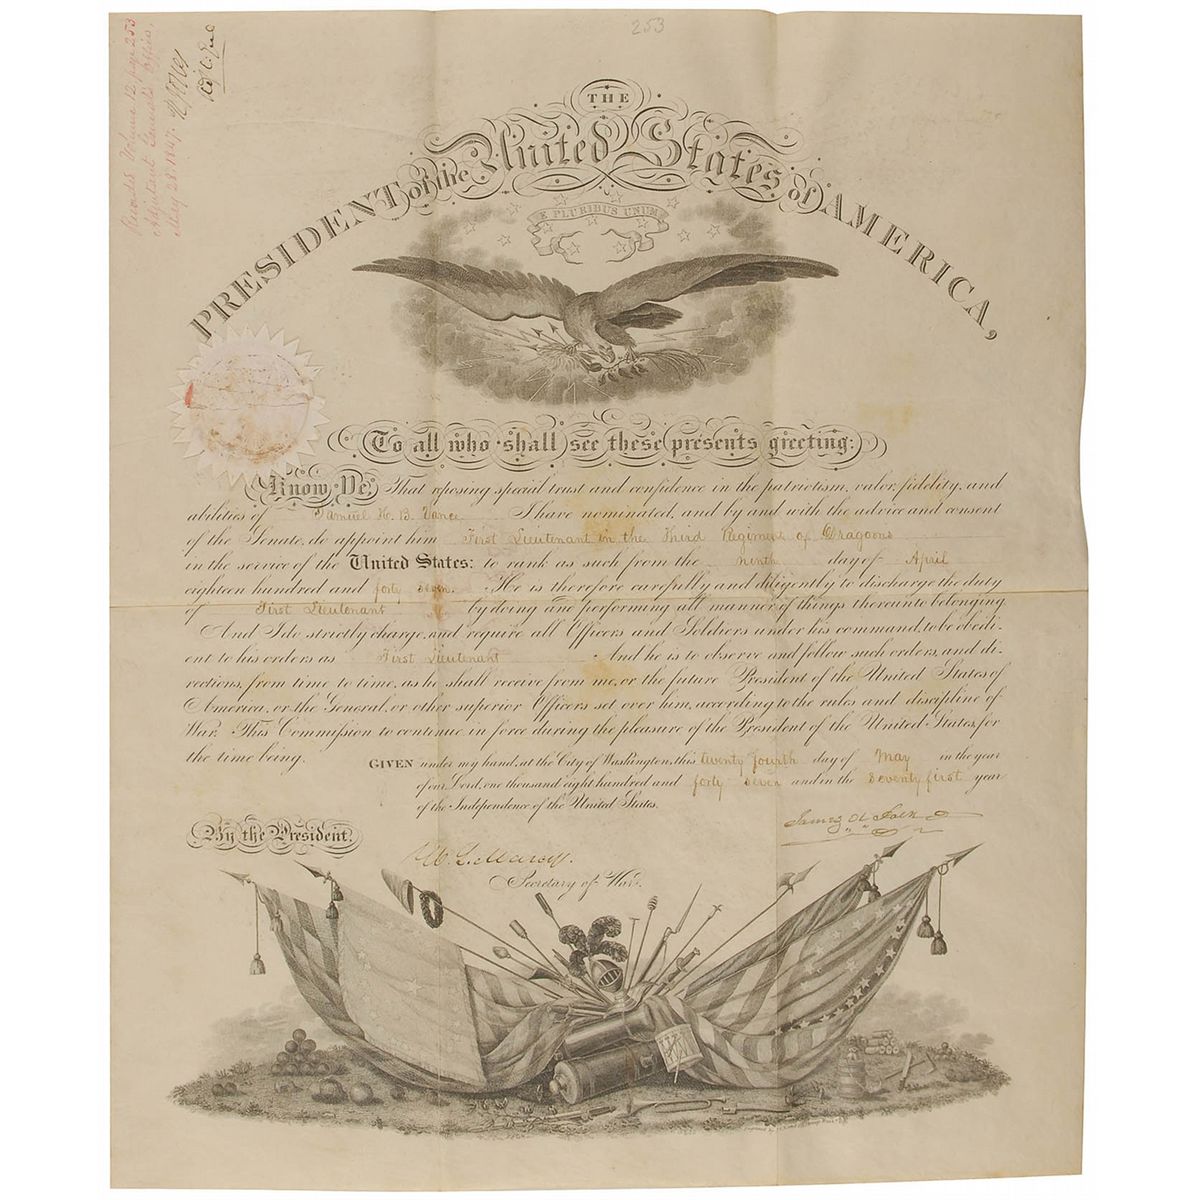 253
Recorded Volume 12, page 253
Adjutant General's Office,
May 28. 1847.
R Jones
Adj. Gen
THE
PRESIDENT of the United States of AMERICA,
E PLURIBUS UNUM
To all who shall see these presents greeting:
Know Ye, That reposing special trust and confidence in the patriotism, valor, fidelity, and
abilities of Samuel H. B. Vance I have nominated, and by and with the advice and consent
of the Senate, do appoint him First Lieutenant in the Third Regiment of Dragoons
in the service of the United States: to rank as such from the ninth day of April
eighteen hundred and forty seven. He is therefore carefully and diligently to discharge the duty
of First Lieutenant by doing and performing all manner of things thereunto belonging.
And I do strictly charge, and require all Officers and Soldiers under his command, to be obedi-
ent to his orders as First Lieutenant And he is to observe and follow such orders, and di-
rections, from time to time, as he shall receive from me, or the future President of the United States of
America, or the General, or other superior Officers set over him, according to the rules and discipline of
War. This Commission to continue in force during the pleasure of the President of the United States, for
the time being.
GIVEN under my hand, at the City of Washington, this twenty fourth day of May in the year
of our Lord, one thousand eight hundred and forty seven and in the seventy first year
of the Independence of the United States.
James K Polk
By the President.
W. L. Marcy.
Secretary of War.